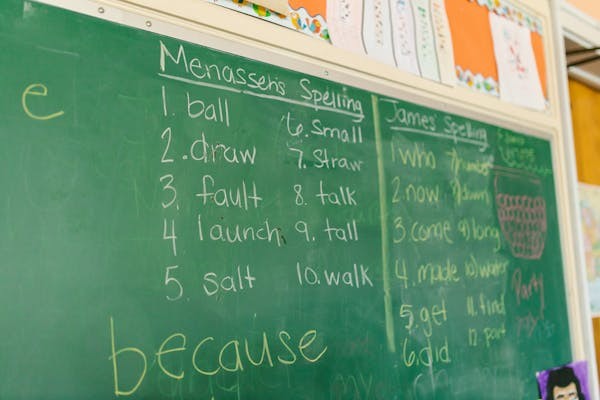 e
Menasseh's Spelling
1. ball
2. draw
3. fault
4 launch
5 salt
6. Small
7. Straw
8. talk
9. tall
10. walk
because
James' Spelling
1 who
2. now
3. come
4. made
5. get
6. did
7) number
8) down
9) long
10) water
11. find
12 part
Party